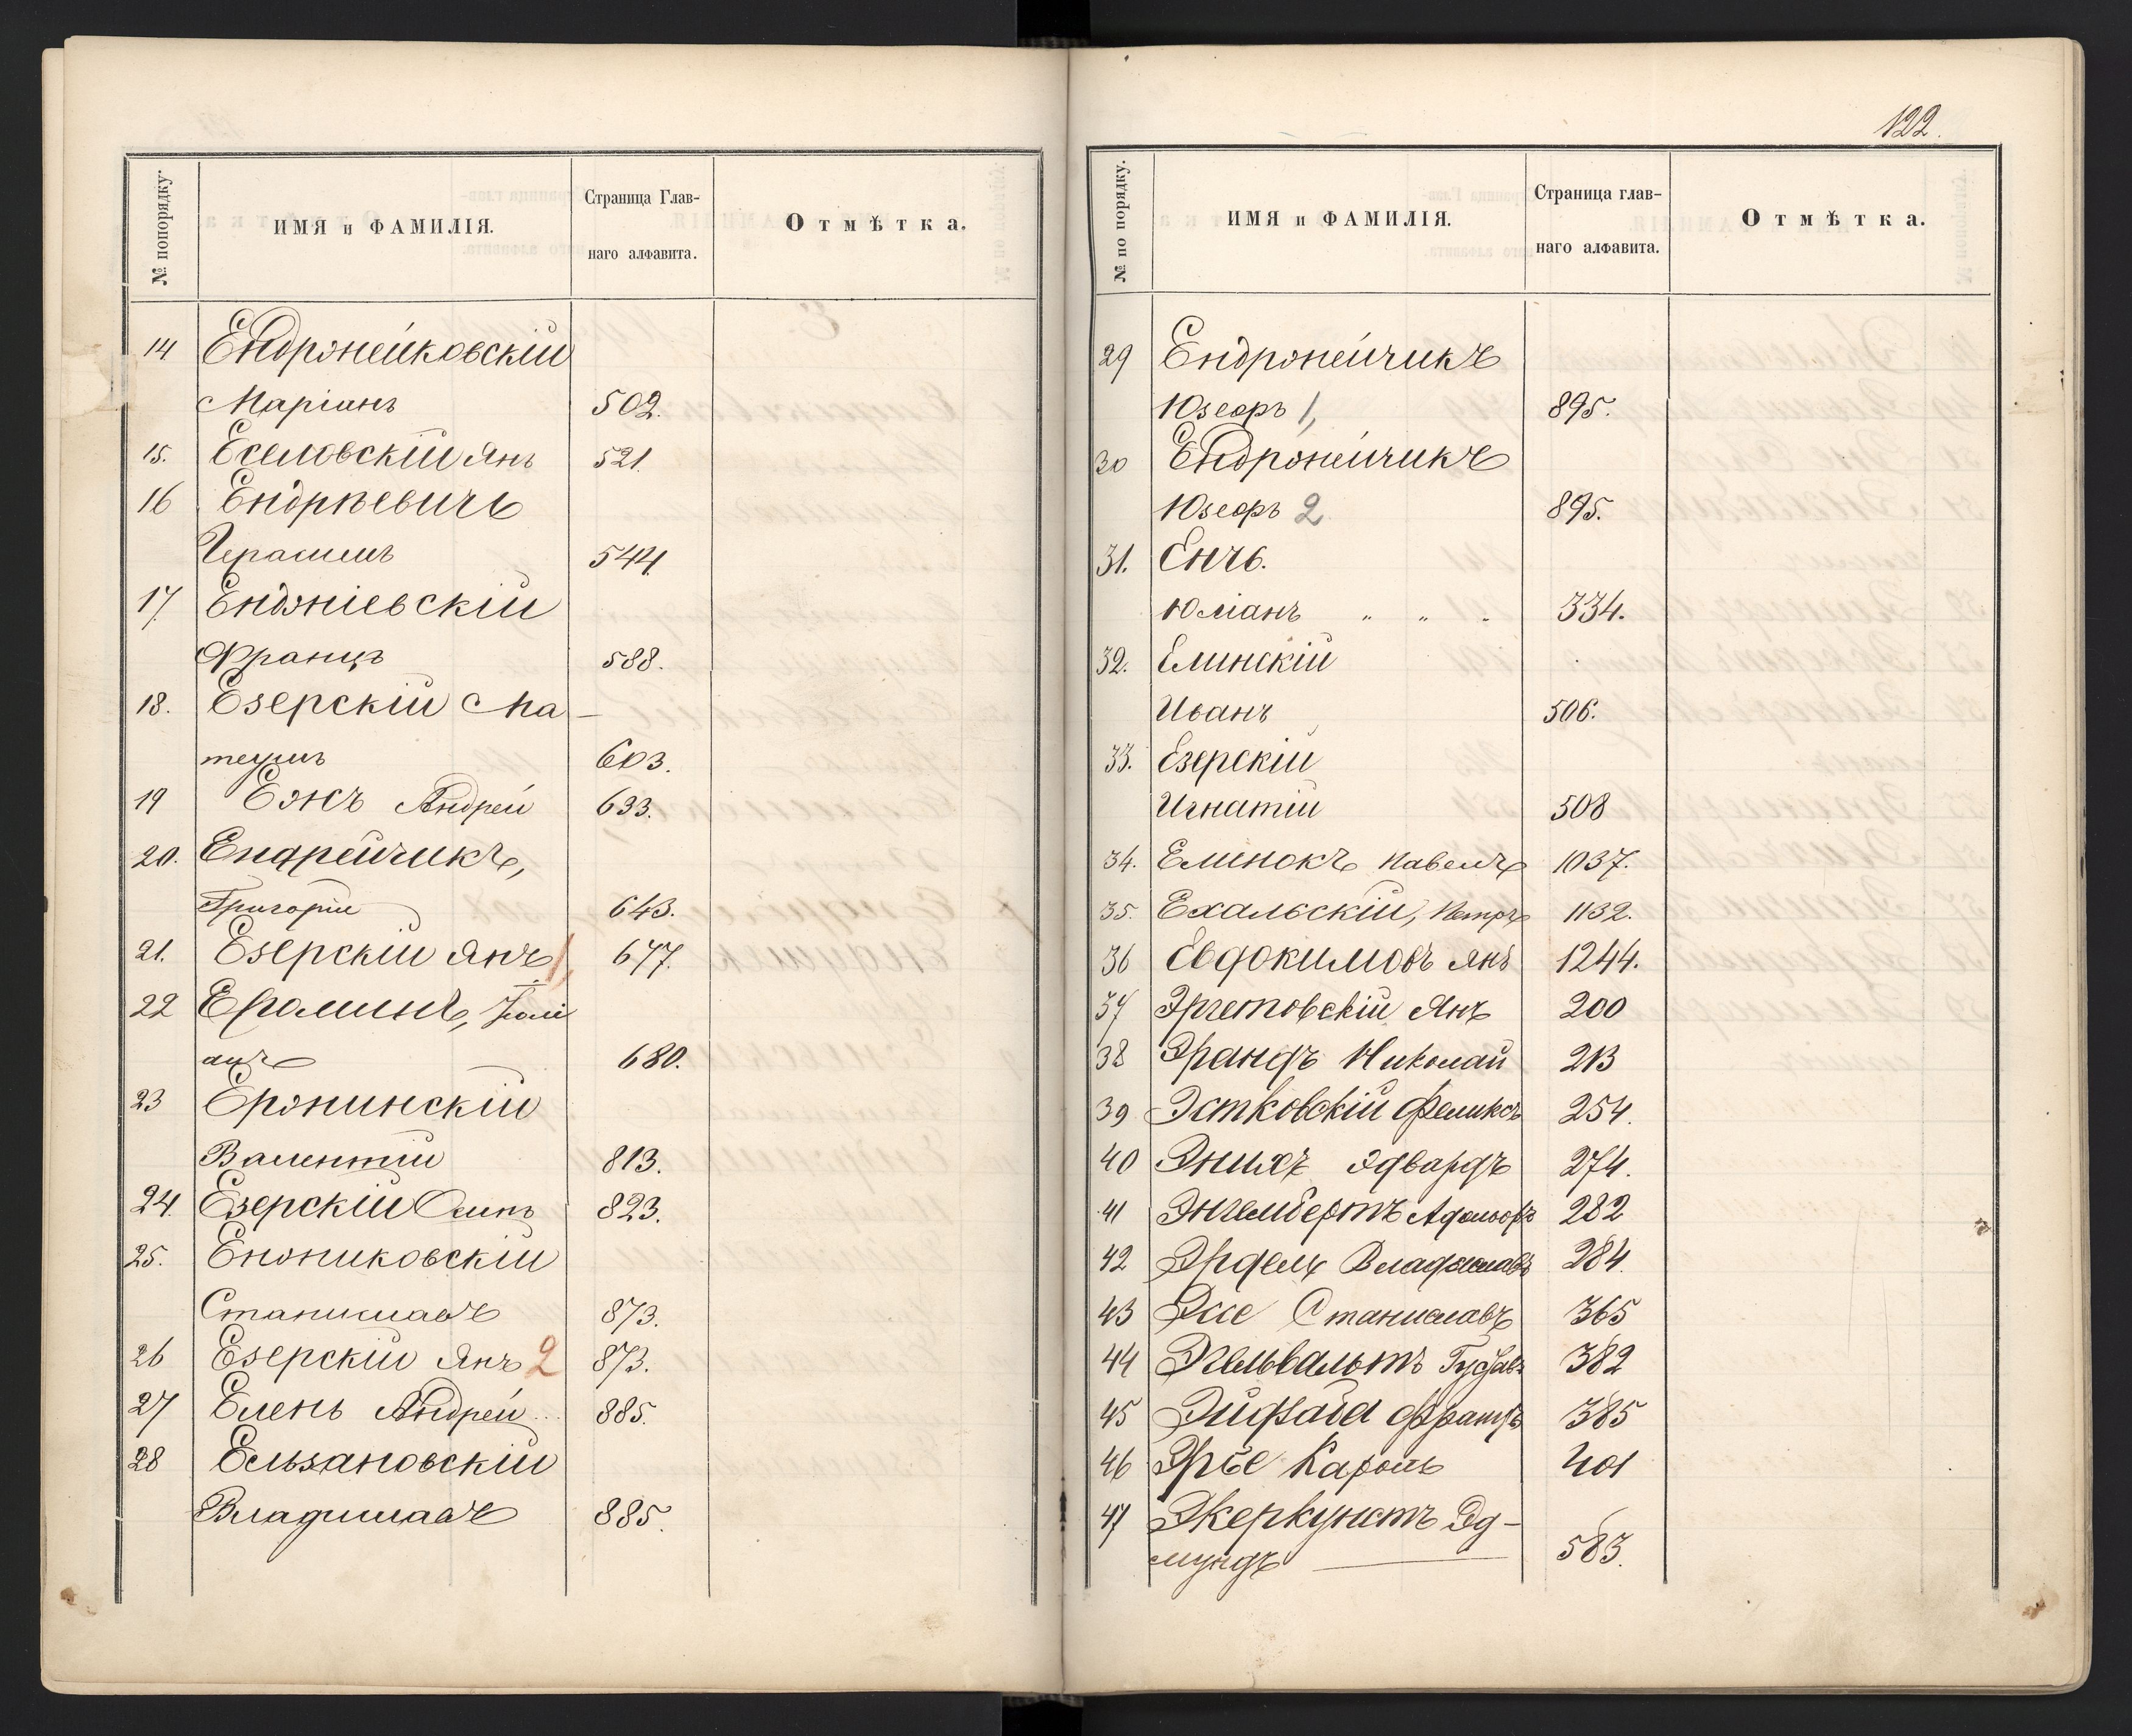 № попорядку.
ИМЯ и ФАМИЛІЯ.
Страница Глав-
наго алфавита.
Отмѣтка.
14 Ендржейковскій
Маріанъ 502.
15. Еселовскій Янъ 521.
16 Ендржевичъ
Герасимъ 544.
17. Енджіевскій
Францъ 588.
18. Езерскій Ма-
теушъ 603.
19 Ежъ Андрей 633.
20. Ендрейчикъ,
Григорій 643.
21. Езерскій Янъ 1, 677.
22 Ероминъ, Юлі
анъ 680.
23 Ержинскій
Валентій 813.
24. Езерскій Осипъ 823.
25. Енджиковскій
Станиславъ 873.
26 Езерскій Янъ 2 873.
27 Елень Андрей 885.
28 Ельзановскій
Владиславъ 885.
122.
№ по порядку.
ИМЯ и ФАМИЛІЯ.
Страница глав-
наго алфавита.
Отмѣтка.
29 Ендржейчикъ
Юзефъ 1, 895.
30 Ендржейчикъ
Юзефъ 2 895.
31. Енчъ.
Юліанъ " " " 334.
32. Елинскій
Иванъ 506.
33. Езерскій
Игнатій 508
34. Елинокъ Павелъ 1037.
35. Ехальскій, Петръ 1132.
36 Евдокимовъ Янъ 1244.
37 Эргетовскій Янъ 200
38 Эрандъ Николай 213
39 Эстковскій Феликсъ 254.
40 Энихъ Эдвардъ 274.
41 Энгельбертъ Адольфъ 282
42 Эрдели Владиславъ 284.
43 Эссе Станиславъ 365
44 Эгельвальтъ Густавъ 382
45 Францъ 385
46 Эрбе Кароль 401
47 Экеркунстъ Эд-
мундъ 583.